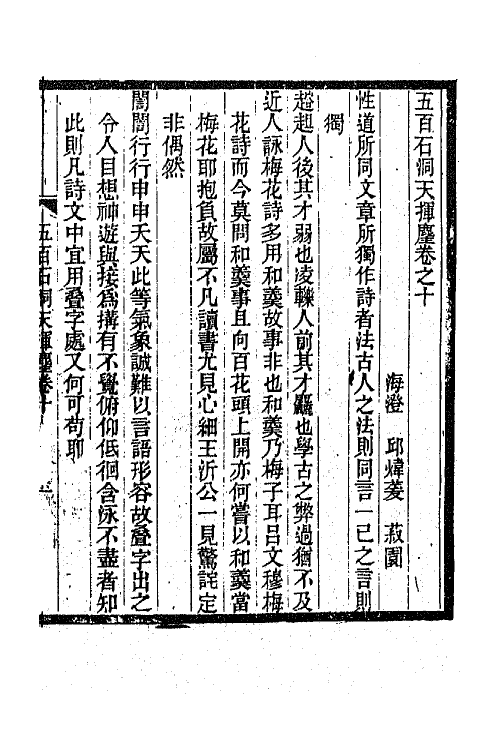 五百石洞天揮麈卷之十
海澄　邱煒萲　菽園
性道所同文章所獨作詩者法古人之法則同言一己之言則
獨
趦趄人後其才弱也凌轢人前其才麤也學古之弊過猶不及
近人詠梅花詩多用和羹故事非也和羹乃梅子耳呂文穆梅
花詩而今莫問和羹事且向百花頭上開亦何嘗以和羹當
梅花耶抱負故屬不凡讀書尤見心細王沂公一見驚詫定
非偶然
誾誾行行申申夭夭此等氣象誠難以言語形容故疊字出之
令人目想神遊與接爲搆有不覺俯仰低徊含泳不盡者知
此則凡詩文中宜用疊字處又何可苟聊
五百石洞天揮麈卷十
一